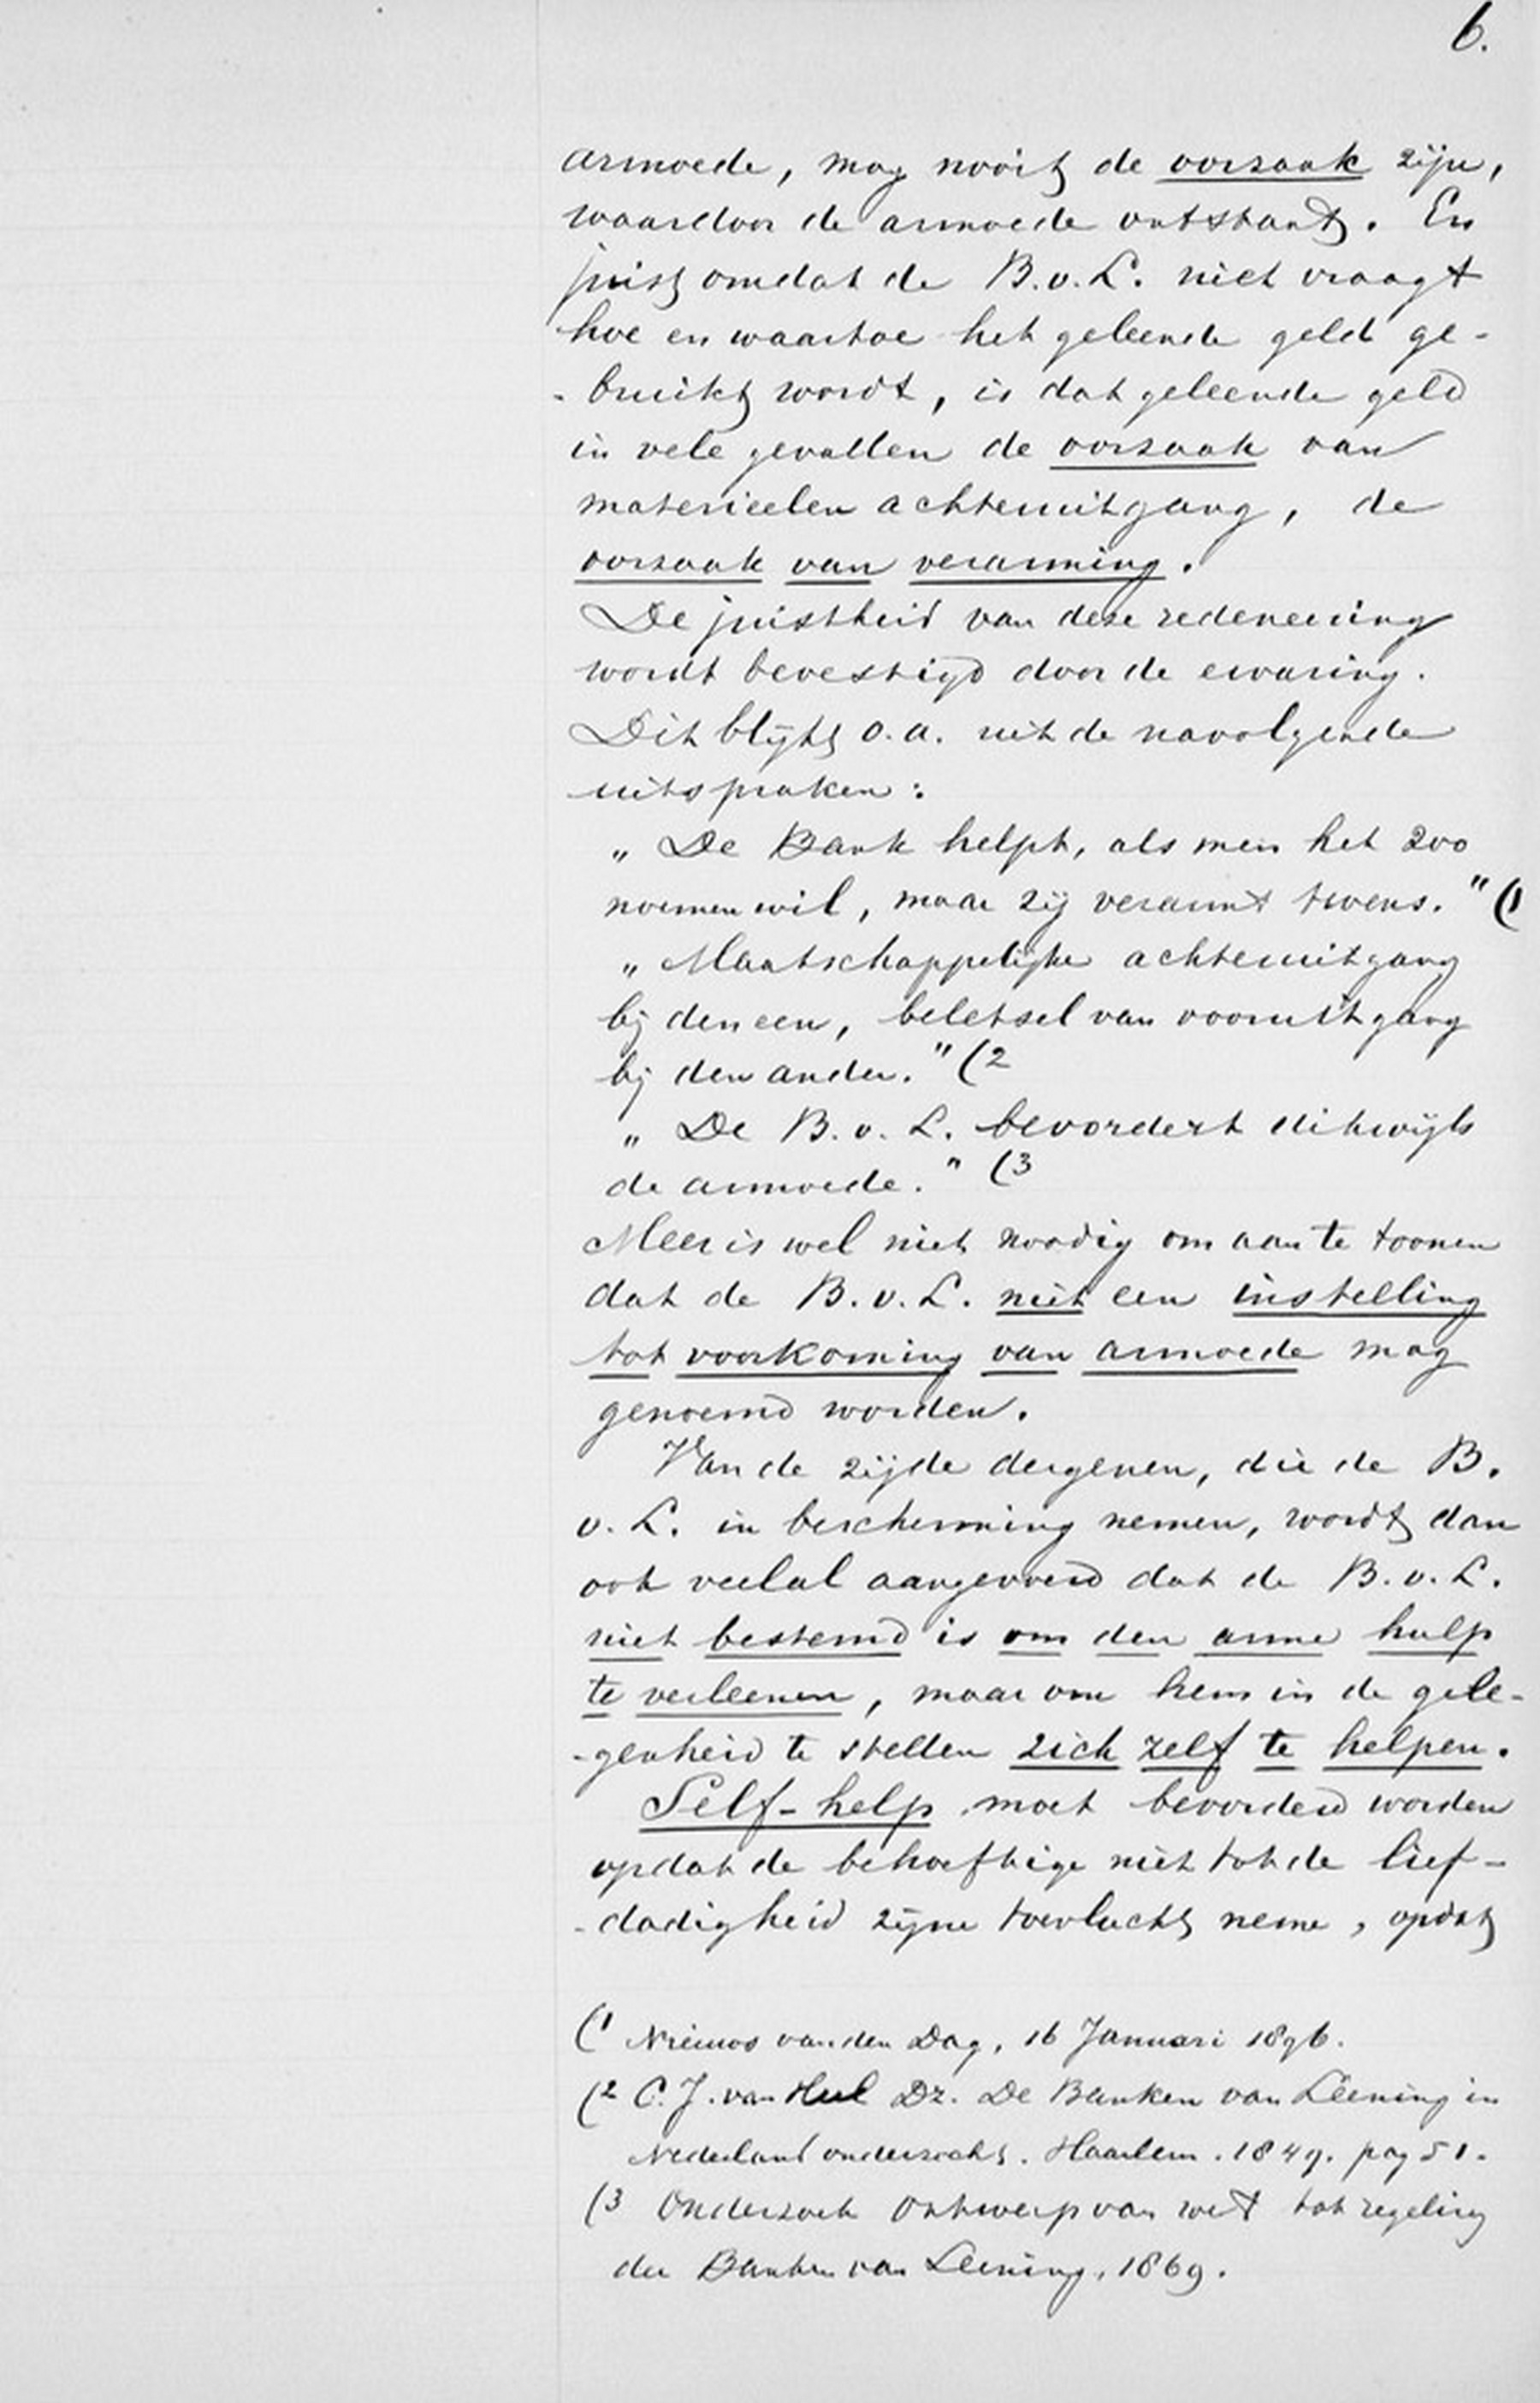 6.
armoede, mag nooit de oorzaak zijn,
waardoor de armoede ontstaat. En
juist omdat de B.v.L. niet vraagt
hoe en waartoe het geleende geld ge-
-bruikt wordt, is dat geleende geld
in vele gevallen de oorzaak van
materieelen achteruitgang, de
oorzaak van verarming.
De juistheid van deze redeneering
wordt bevestigd door de ervaring.
Dit blijkt o.a. uit de navolgende
uitspraken:
„ De Bank helpt, als men het zoo
noemen wil, maar zij verarmt tevens." (1
„ Maatschappelijke achteruitgang
bij den een, beletsel van vooruitgang
bij den ander." (2
„ De B.v.L. bevordert dikwijls
de armoede." (3
Meer is wel niet noodig om aan te toonen
dat de B.v.L. niet een instelling
tot voorkoming van armoede mag
genoemd worden.
Van de zijde dergenen, die de B.
v.L. in bescherming nemen, wordt dan
ook veelal aangevoerd dat de B.v.L.
niet bestemd is om den arme hulp
te verleenen, maar om hem in de gele-
-genheid te stellen zich zelf te helpen.
Self-help moet bevorderd worden
opdat de behoeftige niet tot de lief-
-dadigheid zijne toevlucht neme, opdat
(1 Nieuws van den Dag, 16 Januari 1896.
(2 C.J. van Dz. De Banken van Leening in
Nederland onderzocht. Haarlem. 1849. pag 51.
(3 Onderzoek Ontwerp van wet tot regeling
der Banken van Leening, 1869.